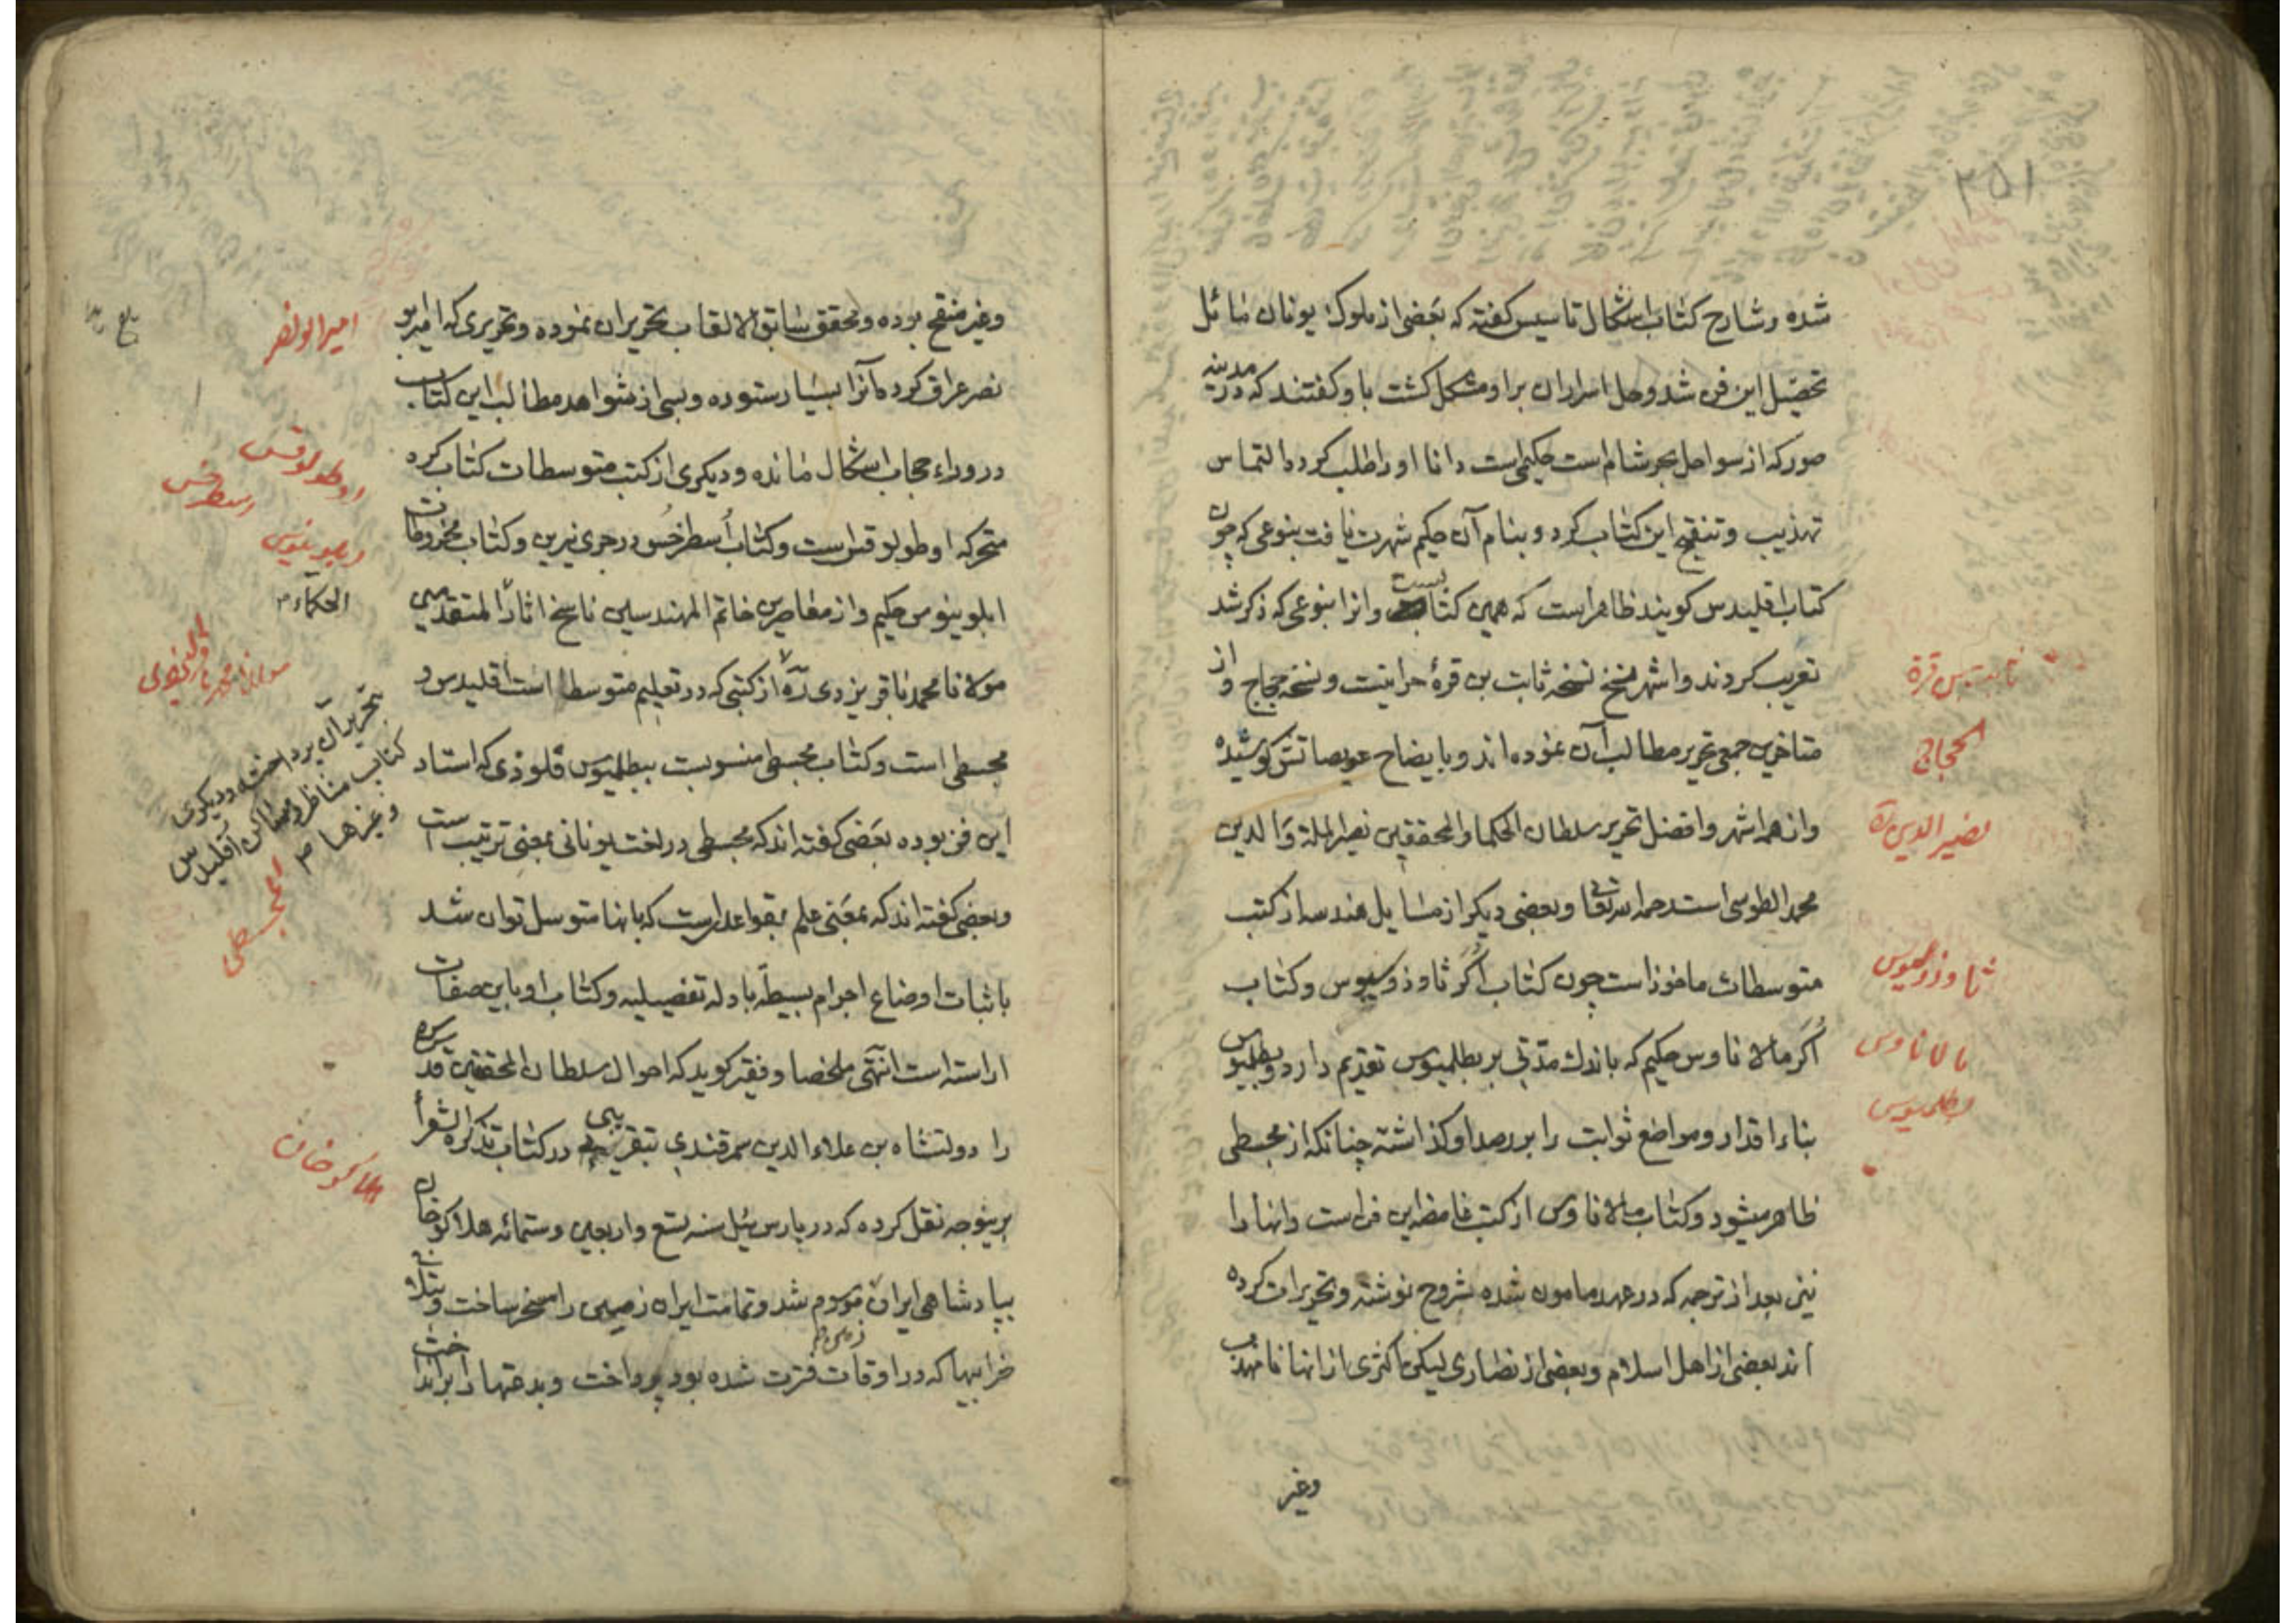 ۲۵۱
شده وشارح کتاب اشکال تاسیس کفته که بعضی از ملوک یونان مائل
تحصیل این فن شد وحل اسرار ان بر او مشکل کشت باو کفتند که در مدینه
صور که از سواحل بحر شام است حکیمی است دانا او را طلب کرده التماس
تهذیب وتنقیح این کتاب کرد وبنام آن حکیم شهرت یافت بنوعی که چون
کتاب اقلیدس کویند ظاهر است که همین کتابست وانرا بنوعی که ذکر شد
تعریب کردند واشهر نسخ نسخه ثابت بن قرهٔ حرانیست ونسخه حجاج واز
متاخرین جمعی تحریر مطالب آن نموده اند وبایضاح عویصاتش کوشیده
واز همه اشهر وافضل تحریر سلطان الحکما والمحققین نصیر الملة والدین
محمد الطوسی است رحمه الله تعالی وبعضی دیکر از مسایل هندسه از کتب
متوسطات ماخوذ است چون کتاب اُکَر ثاوذوسیوس وکتاب
اُکَر مالاناوس حکیم که باندک مدّتی بر بطلمیوس تقدیم دارد وبطلمیوس
بناء اقدار ومواضع ثوابت را بر رصد او کذاشته چنانکه از مجسطی
ظاهر میشود وکتاب مالاناوس از کتب غامضه این فن است وانها را
نیز بعد از ترجمه که در عهد مامون شده شروح نوشته وتحریرات کرده
اند بعضی از اهل اسلام وبعضی از نصاری لیکن اکثری از انها نامهذب
وغیر
ثابت بن قرة
الحجاج
نصیر الدین ره
ثاوذوسیوس
مالاناوس
بطلمیوس
وغیر منقح بوده ومحقق سابق الالقاب تحریر ان نموده وتحریری که امیر ابو
نصر عراق کرده آنرا بسیار ستوده وبسی از شواهد مطالب این کتاب
در وراء حجاب اشکال مانده ودیکری از کتب متوسطات کتاب کره
متحرکه اوطولوقس است وکتاب اُسطرخُس در جرمی نیرین وکتاب مخروطات
ابلوینوس حکیم واز معاصرین خاتم المهندسین ناسخ اثار المتقدمین
مولانا محمد باقر یزدی ره از کتبی که در تعلیم متوسط است اقلیدس و
مجسطی است وکتاب مجسطی منسوبست ببطلمیوس قلوذی که استاد
این فن بوده بعضی کفته اند که مجسطی در لغت یونانی بمعنی ترتیب است
وبعضی کفته اند که بمعنی علم بقواعد است که بانها متوسل توان شد
باثبات اوضاع اجرام بسیطه بادله تفصیلیه وکتاب او باین صفات
اراسته است انتهی ملخصا وفقیر کوید که احوال سلطان المحققین قدس سره
را دولتشاه بن علاء الدین سمرقندی بتقریبی در کتاب تذکره الشعرأ
برینوجه نقل کرده که در پارس ئیل سنه تسع واربعین وستمائه هلاکو خان
بپادشاهی ایران موسوم شد وتمامت ایران زمین را مسخر ساخت وبتلافی
خرابیها که در اوقات فترت شده بود پرداخت وبدعتها را برانداخت
امیر ابو نصر
اوطولوقس
اسطرخس
ابلوینوس
الحکماء م
مولانا محمد باقر الیزدی
بتحریر آن پرداخت ودیکری
کتاب مناظر ومساکن اقلیدس
وغیرها م
المجسطی
هلاکو خان